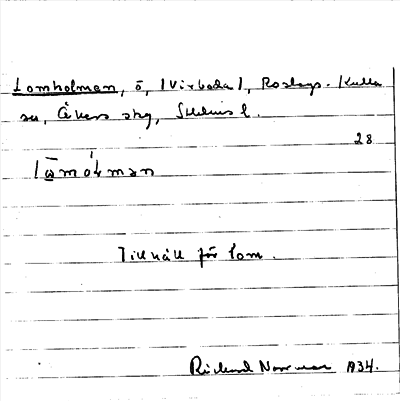 Lomholmen, ö, (Virboda), Roslags-Kulla
sn, Åkers skg, Sthlms l.
28
Tillhåll för lom.
Rickard Norrman 1934.